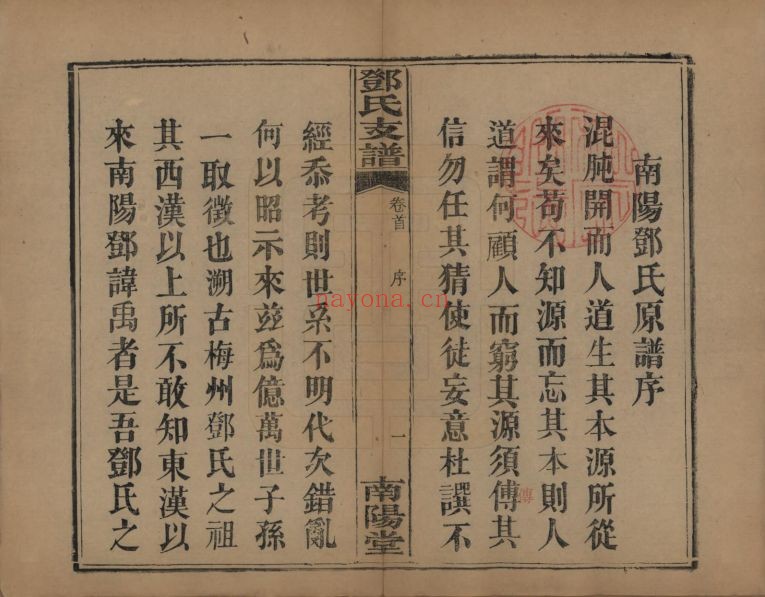 南陽鄧氏原譜序
混肫開而人道生其本源所從
來矣苟不知源而忘其本則人
道謂何顧人而窮其源須傅其
傳
信勿任其猜使徒妄意杜譔不
鄧氏支譜
卷首
序
一
南陽堂
經叅考則世系不明代次錯亂
何以昭示來兹爲億萬世子孫
一取徵也溯古梅州鄧氏之祖
其西漢以上所不敢知東漢以
來南陽鄧諱禹者是吾鄧氏之
nayona.cn